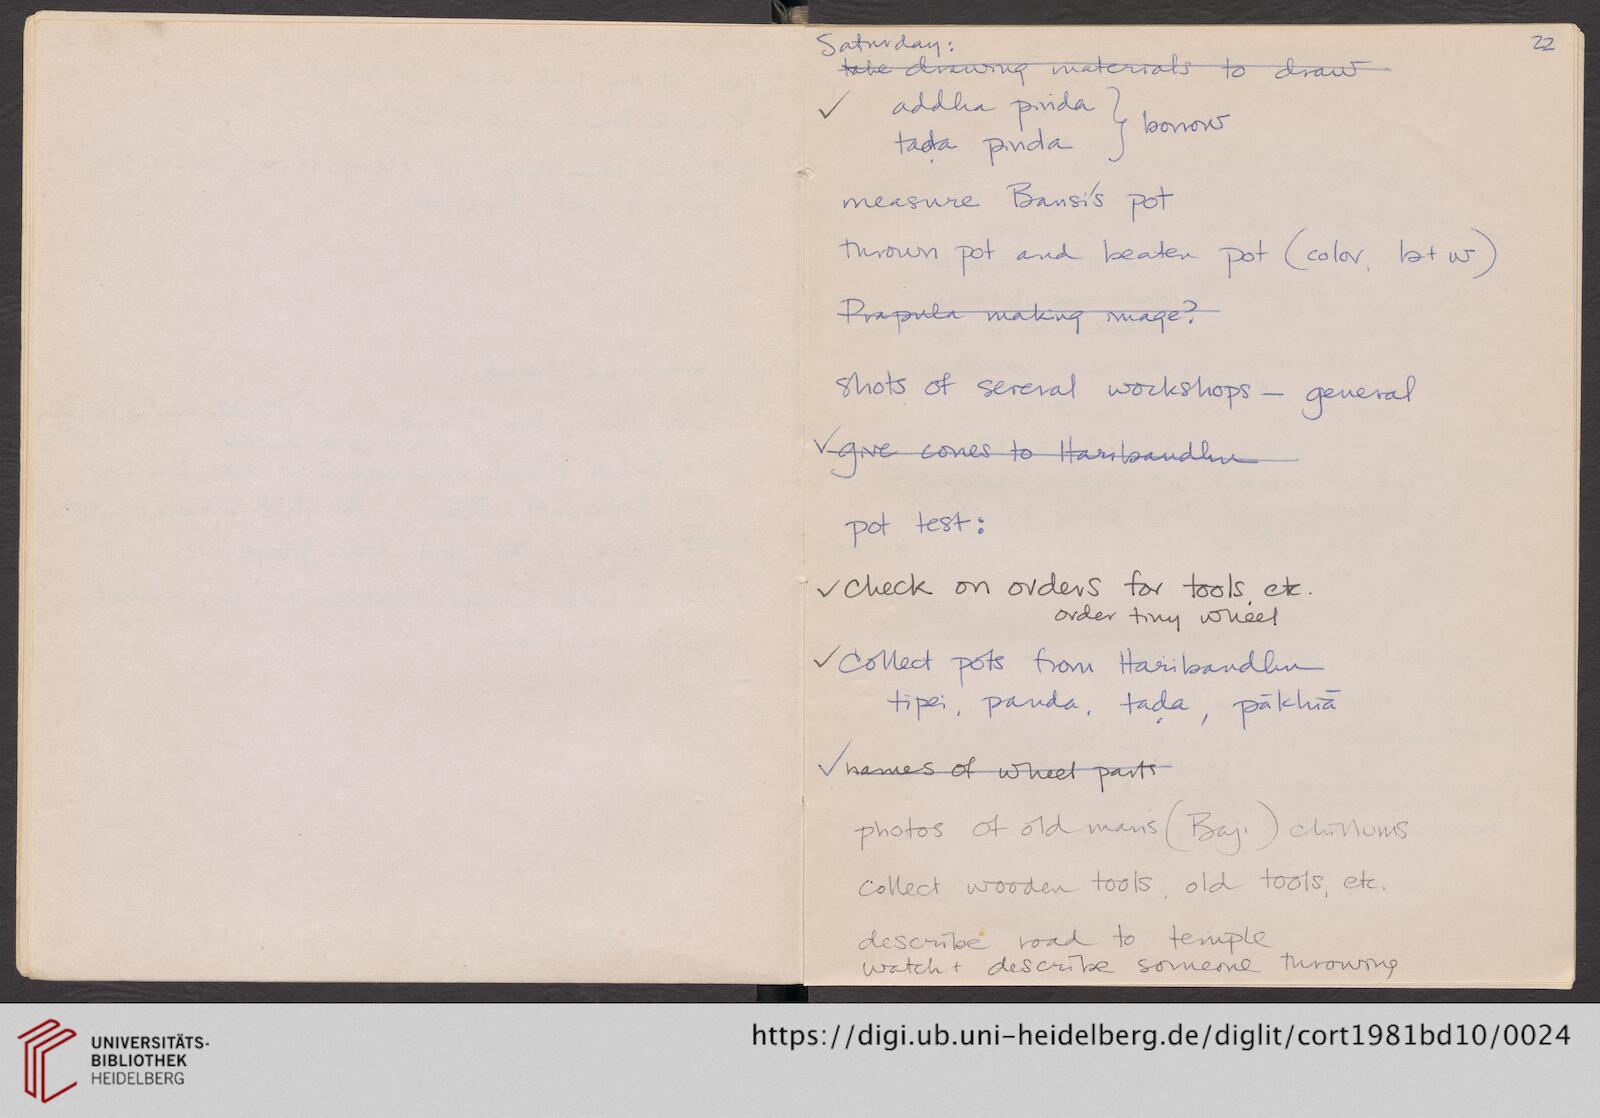 22
Saturday:
take drawing materials to draw
✓ addha pinda } borrow
taḍa pinda
measure Bansi's pot
thrown pot and beaten pot (color, b + w)
Prapula making image?
shots of several workshops — general
✓ give cones to Haribandhu
pot test:
✓ check on orders for tools, etc.
order tiny wheel
✓ Collect pots from Haribandhu
tipei, panda, taḍa, pākhiā
✓ names of wheel parts
photos of old mans (Baji) chillums
collect wooden tools, old tools, etc.
describe road to temple
watch + describe someone throwing
UNIVERSITÄTS-
BIBLIOTHEK
HEIDELBERG
https://digi.ub.uni-heidelberg.de/diglit/cort1981bd10/0024